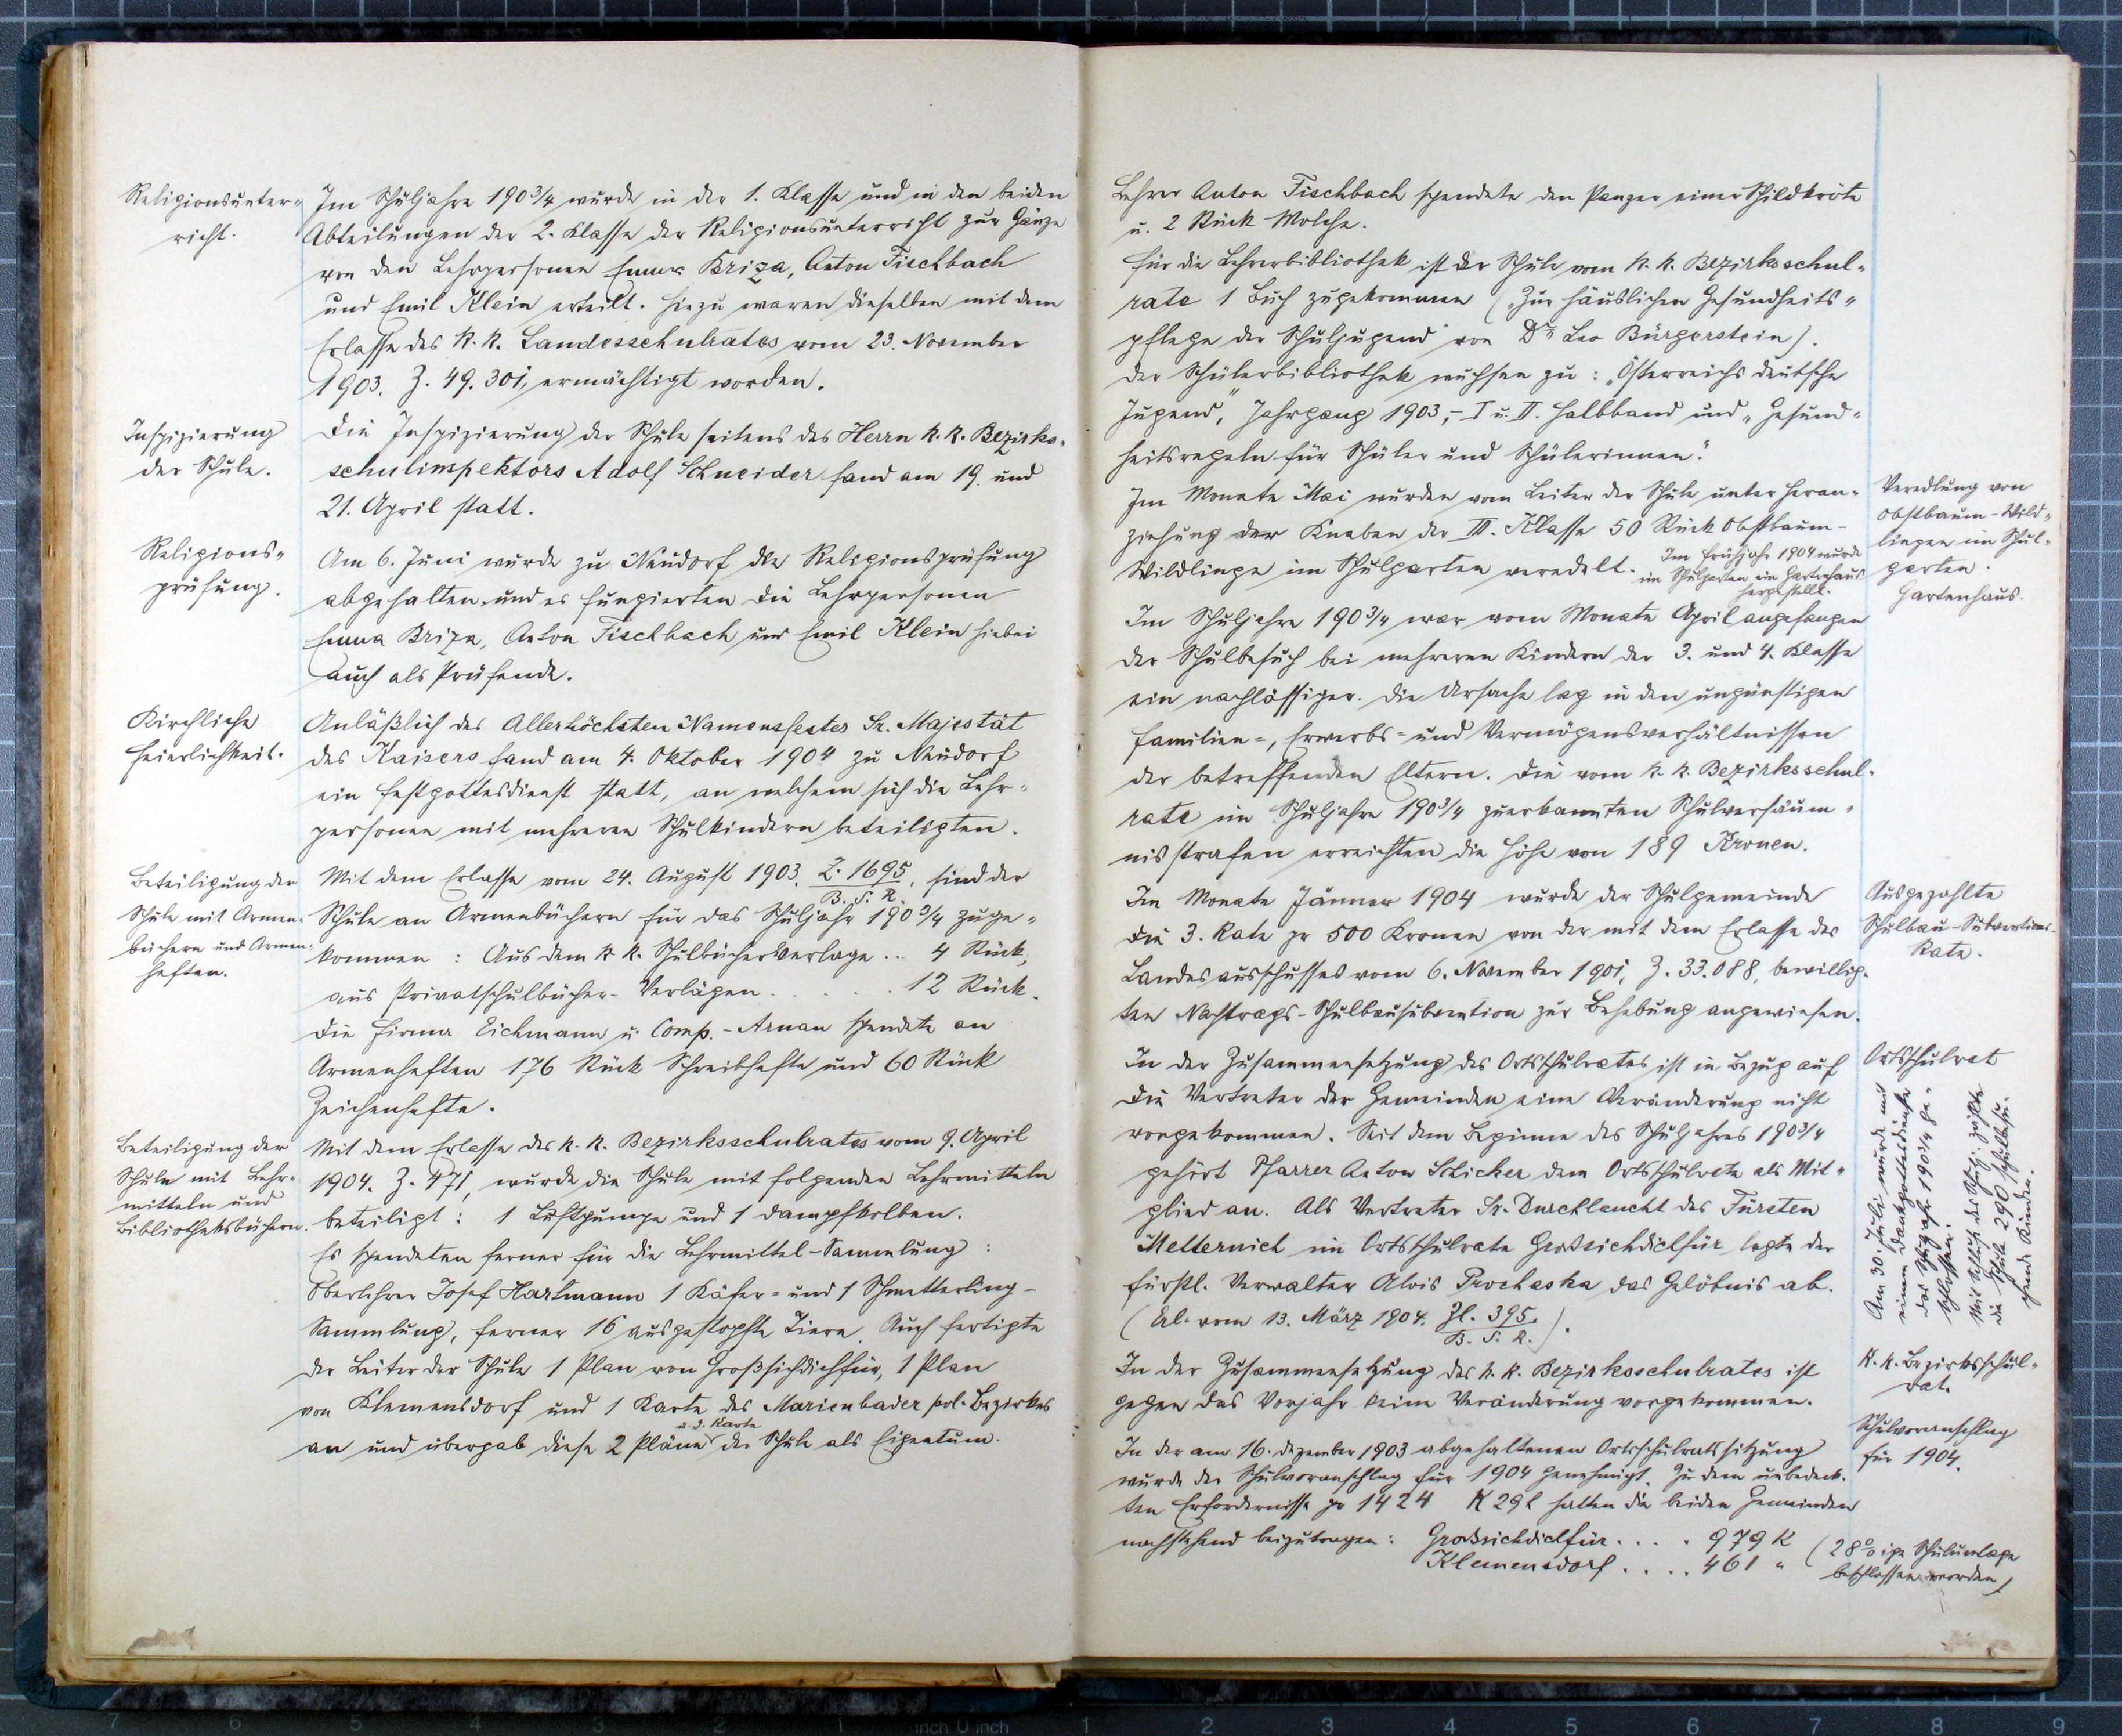 Religionsunter-
richt.
Im Schuljahre 1903/4 wurde in der 1. Klasse und in den beiden
Abteilungen der 2. Klasse der Religionsunterricht zur Gänze
von den Lehrpersonen Emma Briza, Anton Fischbach
und Emil Klein erteilt. Hiezu waren dieselben mit dem
Erlasse des k. k. Landesschulrates vom 23. November
1903, Z. 49.301, ermächtigt worden.
Inspizierung
der Schule.
Die Inspizierung der Schule seitens des Herrn k. k. Bezirks-
schulinspektors Adolf Schneider fand am 19. und
21. April statt.
Religions-
prüfung.
Am 6. Juni wurde zu Neudorf die Religionsprüfung
abgehalten und es fungierten die Lehrpersonen
Emma Briza, Anton Fischbach und Emil Klein hiebei
auch als Prüfende.
Kirchliche
Feierlichkeit.
Anläßlich des Allerhöchsten Namensfestes Sr. Majestät
des Kaisers fand am 4. Oktober 1904 zu Neudorf
ein Festgottesdienst statt, an welchem sich die Lehr-
personen mit mehreren Schulkindern beteiligten.
Beteiligung der
Schule mit Armen-
büchern und Armen-
heften.
Mit dem Erlasse vom 24. August 1903, Z. 1695 / B. S. R., sind der
Schule an Armenbüchern für das Schuljahr 1903/4 zuge-
kommen : Aus dem k. k. Schulbücherverlage .. 4 Stück,
aus Privatschulbücher-Verlägen . . . . . . 12 Stück.
Die Firma Eichmann u. Comp. - Arnau spendete an
Armenheften 176 Stück Schreibhefte und 60 Stück
Zeichenhefte.
Beteiligung der
Schule mit Lehr-
mitteln und
Bibliotheksbüchern.
Mit dem Erlasse des k. k. Bezirksschulrates vom 9. April
1904. Z. 471, wurde die Schule mit folgenden Lehrmitteln
beteiligt : 1 Luftpumpe und 1 Dampfkolben.
Es spendeten ferner für die Lehrmittel-Sammlung :
Oberlehrer Josef Hartmann 1 Käfer- und 1 Schmetterling-
Sammlung, ferner 16 ausgestopfte Tiere. Auch fertigte
der Leiter der Schule 1 Plan von Großsichdichfür, 1 Plan
von Klemensdorf und 1 Karte des Marienbader pol. Bezirkes
u. d. Karte
an und übergab diese 2 Pläne der Schule als Eigentum.
Lehrer Anton Fischbach spendete den Panzer einer Schildkröte
u. 2 Stück Molche.
Für die Lehrerbibliothek ist der Schule vom k. k. Bezirksschul-
rate 1 Buch zugekommen („Zur häuslichen Gesundheits-
pflege der Schuljugend" von Dr. Leo Bürgerstein).
Der Schülerbibliothek wuchsen zu : „Österreichs deutsche
Jugend", Jahrgang 1903, - I u. II. Halbband und „Gesund-
heitsregeln für Schüler und Schülerinnen".
Im Monate Mai wurden vom Leiter der Schule unter Heran-
ziehung der Knaben der III. Klasse 50 Stück Obstbaum-
Wildlinge im Schulgarten veredelt. Im Frühjahr 1904 wurde
im Schulgarten ein Gartenhaus
hergestellt.
Veredlung von
Obstbaum-Wild-
lingen im Schul-
garten.
Gartenhaus.
Im Schuljahre 1903/4 war vom Monate April angefangen
der Schulbesuch bei mehreren Kindern der 3. und 4. Klasse
ein nachlässiger. Die Ursache lag in den ungünstigen
Familien-, Erwerbs- und Vermögensverhältnissen
der betreffenden Eltern. Die vom k. k. Bezirksschul-
rate im Schuljahre 1903/4 zuerkannten Schulversäum-
nisstrafen erreichten die Höhe von 189 Kronen.
Im Monate Jänner 1904 wurde der Schulgemeinde
die 3. Rate pr 500 Kronen von der mit dem Erlasse des
Landesausschusses vom 6. November 1901, Z. 33.088, bewillig-
ten Nachtrags-Schulbausubvention zur Behebung angewiesen.
Ausgezahlte
Schulbau-Subventions-
Rate.
In der Zusammensetzung des Ortsschulrates ist in Bezug auf
die Vertreter der Gemeinden eine Veränderung nicht
vorgekommen. Seit dem Beginne des Schuljahres 1903/4
gehört Pfarrer Anton Schicker dem Ortsschulrate als Mit-
glied an. Als Vertreter Sr. Durchlaucht des Fürsten
Metternich im Ortsschulrate Großsichdichfür legte der
fürstl. Verwalter Alois Prochaska das Gelöbnis ab.
(Erl. vom 13. März 1904. Zl. 395. / B. S. R.).
Ortsschulrat
Am 30. Juli wurde mit
einem Dankgottesdienste
das Schuljahr 1903/4 ge-
schlossen.
Mit Schluß des Schulj. zählte
die Schule 290 schulbesu-
chende Kinder.
In der Zusammensetzung des k. k. Bezirksschulrates ist
gegen das Vorjahr keine Veränderung vorgekommen.
K. k. Bezirksschul-
rat.
In der am 16. Dezember 1903 abgehaltenen Ortsschulratssitzung
wurde der Schulvoranschlag für 1904 genehmigt. Zu dem unbedeck-
ten Erfordernisse pr 1424 K 29 h hatten die beiden Gemeinden
nachstehend beizutragen: Großsichdichfür . . . . 979 K
Klemensdorf . . . . 461 "
(28%ige Schulumlage
beschlossen worden)
Schulvoranschlag
für 1904.